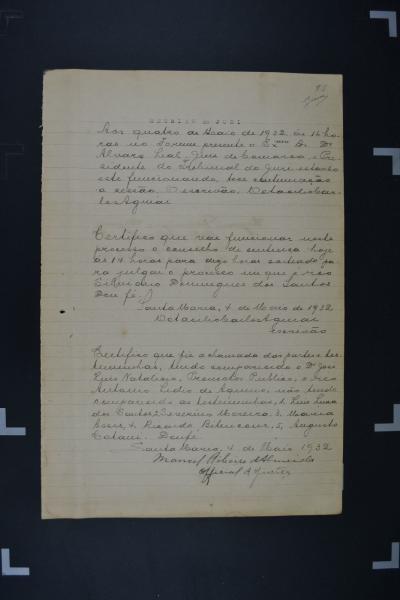 REUNIÃO DO JURI
Aos quatro de Maio de 1932, ás 14 ho-
ras no Forum presente o Exmo Sr. Dr
Alvaro Leal, Juiz de Comarca, e Pre-
sidente do Tribunal do Juri estando
este funccionando, teve continuação
a sessão. O escrivão, Octacilio Car-
los Aguiar
Certifico que vae funcionar neste
processo o conselho de sentença hoje
ás 14 horas para
ra julgar o processo em que é réo
Domingues dos Santos
Dou fé.
Santa Maria, 4 de Maio de 1932
Octacilio Carlos Aguiar
escrivão
Certifico que fiz a chamada das partes e tes-
temunhas, tendo comparecido o Dr José
Luiz Natalicio, Promotor Publico, o réo
Antonio Lidio de Aquino, não tendo
comparecido as testemunhas, 1. Luiz
dos Santos 2. Severino Moreira. 3. Maria
4. Ricardo Bitencourt, 5, Augusto
Dou fé
Santa Maria, 4 de Maio 1932
Manoel Ribeiro d'Almeida
Official de Justiça